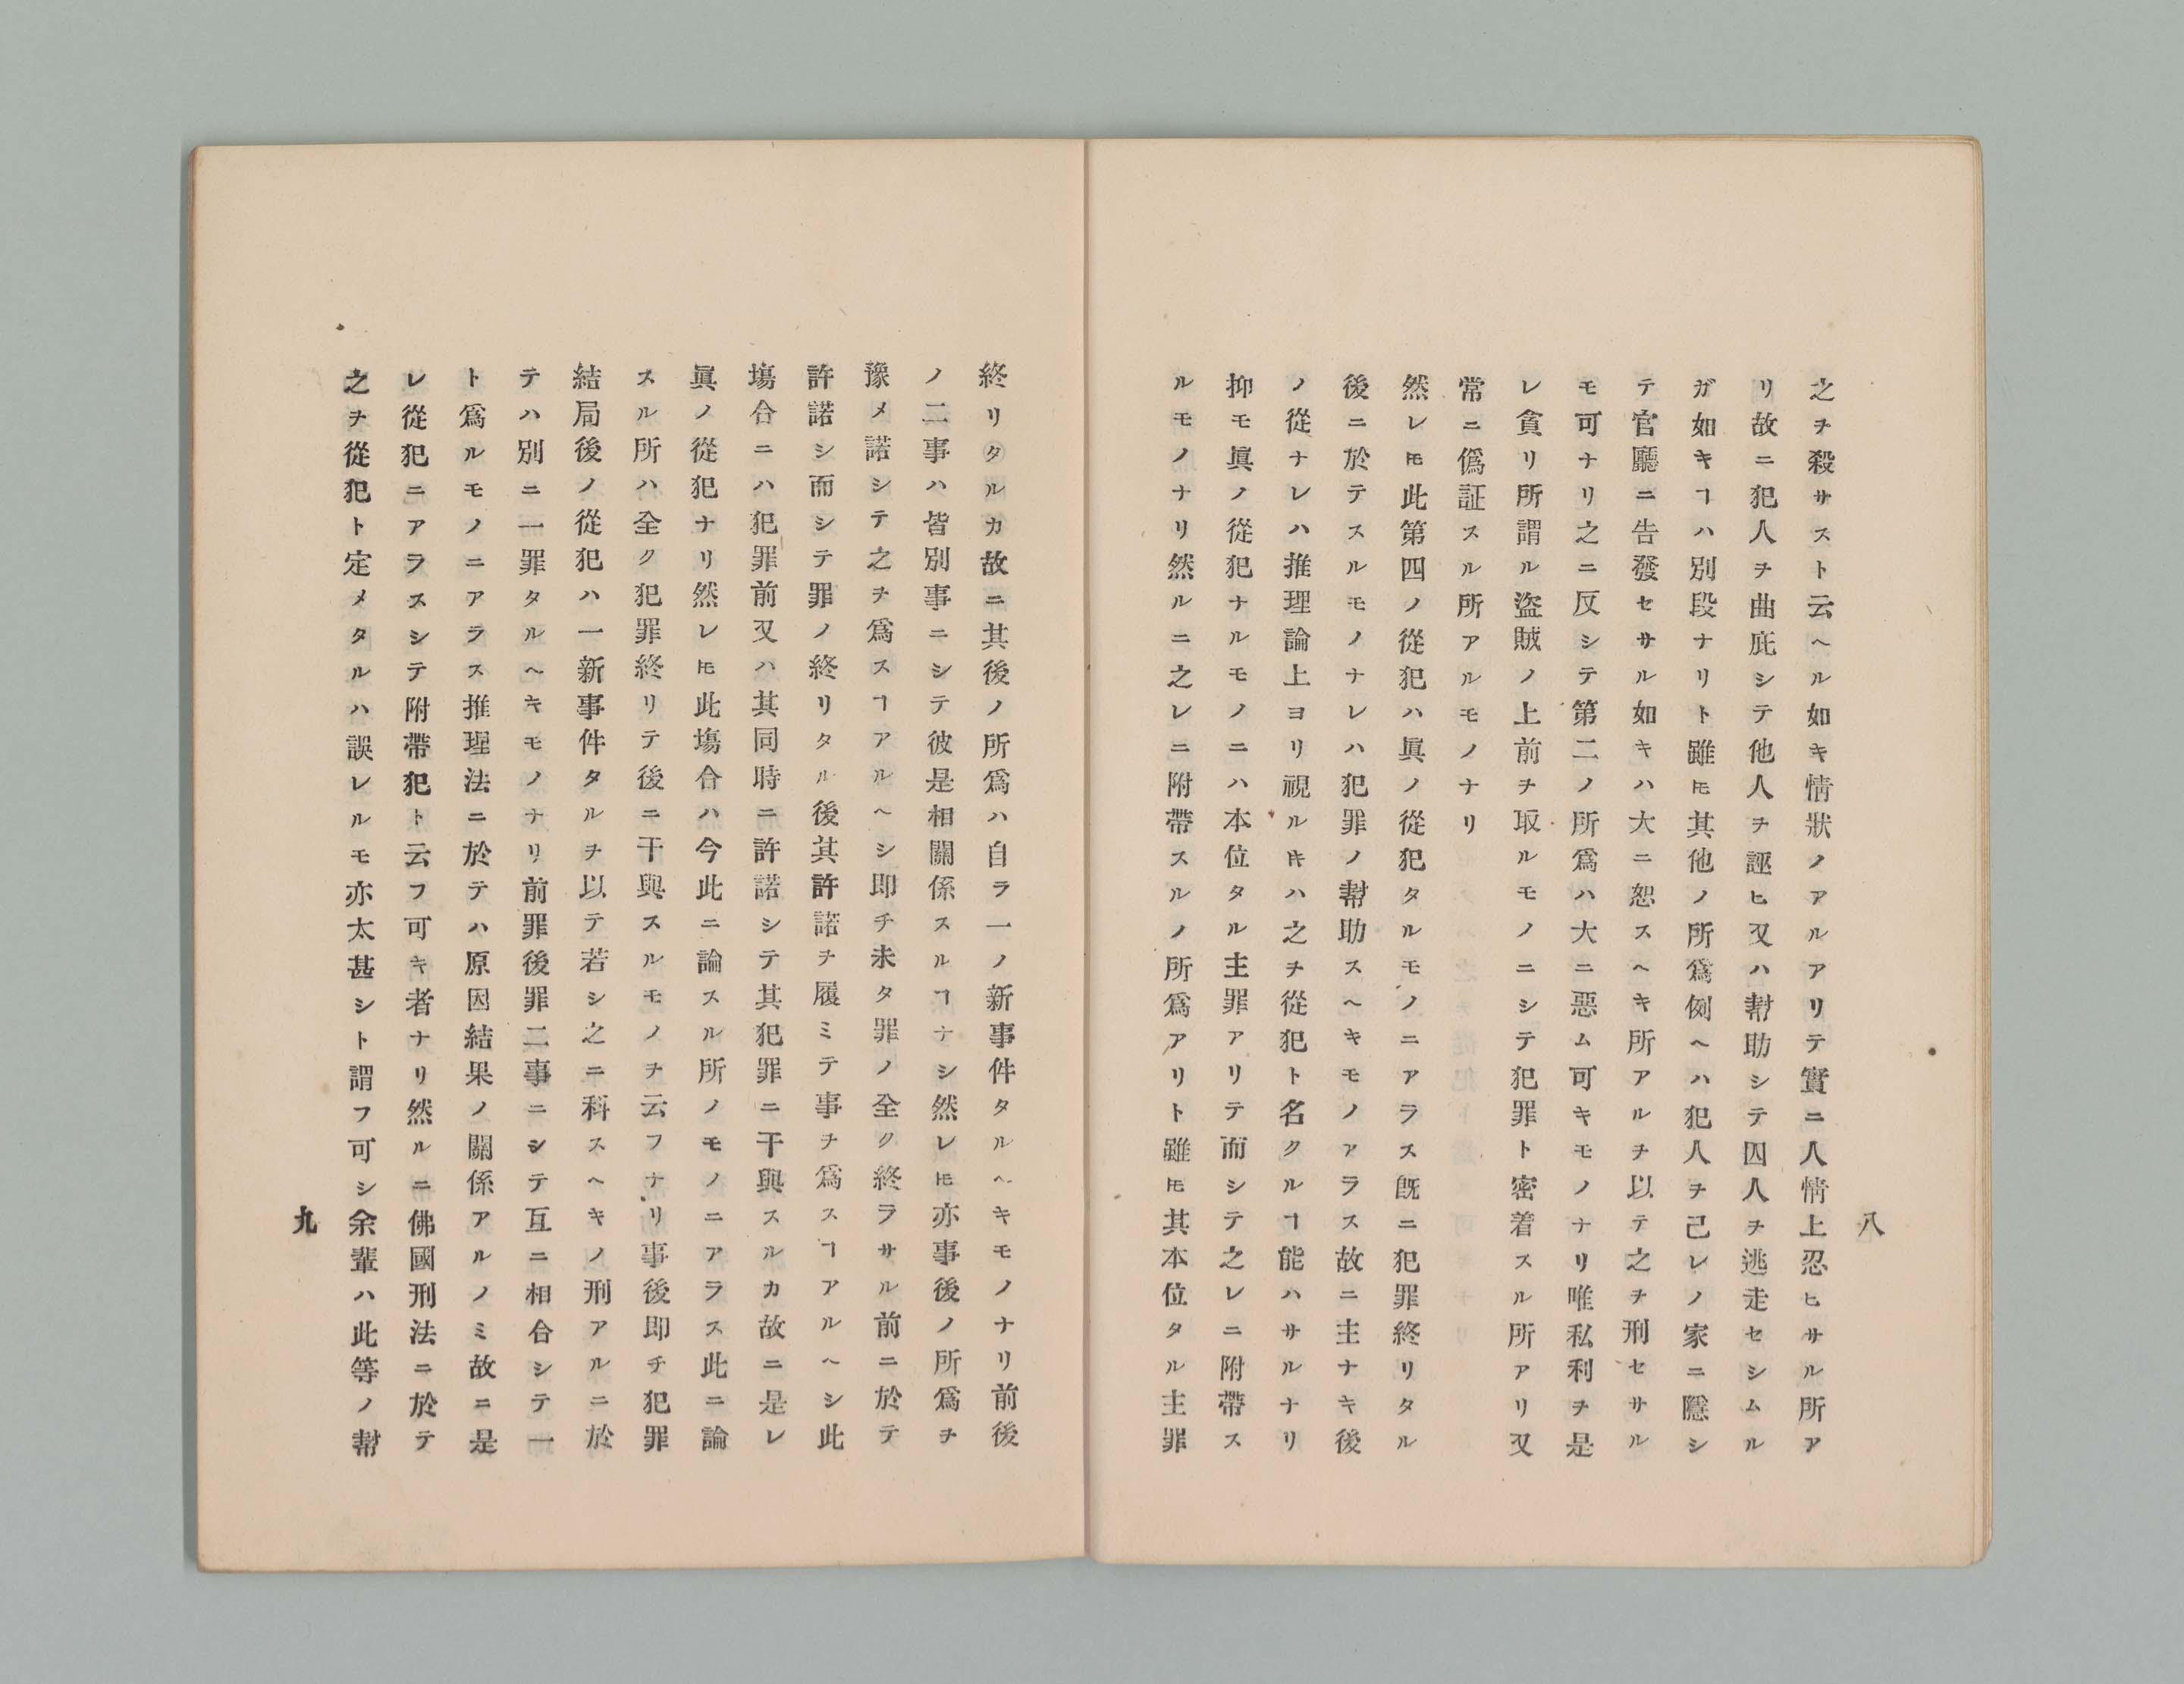 八
之ヲ殺サスト云ヘル如キ情狀ノアルアリテ實ニ人情上忍ヒサル所ア
リ故ニ犯人ヲ曲庇シテ他人ヲ誣ヒ又ハ幇助シテ囚人ヲ逃走セシムル
ガ如キヿハ別段ナリト雖𪜈其他ノ所爲例ヘハ犯人ヲ己レノ家ニ隱シ
テ官廳ニ告發セサル如キハ大ニ恕スヘキ所アルヲ以テ之ヲ刑セサル
モ可ナリ之ニ反シテ第二ノ所爲ハ大ニ惡ム可キモノナリ唯私利ヲ是
レ貪リ所謂ル盜賊ノ上前ヲ取ルモノニシテ犯罪ト密着スル所アリ又
常ニ僞証スル所アルモノナリ
然レ𪜈此第四ノ從犯ハ眞ノ從犯タルモノニアラス既ニ犯罪終リタル
後ニ於テスルモノナレハ犯罪ノ幇助スヘキモノアラス故ニ主ナキ後
ノ從ナレハ推理論上ヨリ視ルキハ之ヲ從犯ト名クルヿ能ハサルナリ
抑モ眞ノ從犯ナルモノニハ本位タル主罪アリテ而シテ之レニ附帶ス
ルモノナリ然ルニ之レニ附帶スルノ所爲アリト雖𪜈其本位タル主罪
終リタルカ故ニ其後ノ所爲ハ自ラ一ノ新事件タルヘキモノナリ前後
ノ二事ハ皆別事ニシテ彼是相關係スルヿナシ然レ𪜈亦事後ノ所爲ヲ
豫メ諾シテ之ヲ爲スヿアルヘシ即チ未タ罪ノ全ク終ラサル前ニ於テ
許諾シ而シテ罪ノ終リタル後其許諾ヲ履ミテ事ヲ爲スヿアルヘシ此
塲合ニハ犯罪前又ハ其同時ニ許諾シテ其犯罪ニ干與スルカ故ニ是レ
眞ノ從犯ナリ然レ𪜈此塲合ハ今此ニ論スル所ノモノニアラス此ニ論
スル所ハ全ク犯罪終リテ後ニ干與スルモノヲ云フナリ事後即チ犯罪
結局後ノ從犯ハ一新事件タルヲ以テ若シ之ニ科スヘキノ刑アルニ於
テハ別ニ一罪タルヘキモノナリ前罪後罪二事ニシテ互ニ相合シテ一
ト爲ルモノニアラス推理法ニ於テハ原因結果ノ關係アルノミ故ニ是
レ從犯ニアラスシテ附帶犯ト云フ可キ者ナリ然ルニ佛國刑法ニ於テ
之ヲ從犯ト定メタルハ誤レルモ亦太甚シト謂フ可シ余輩ハ此等ノ幇
九